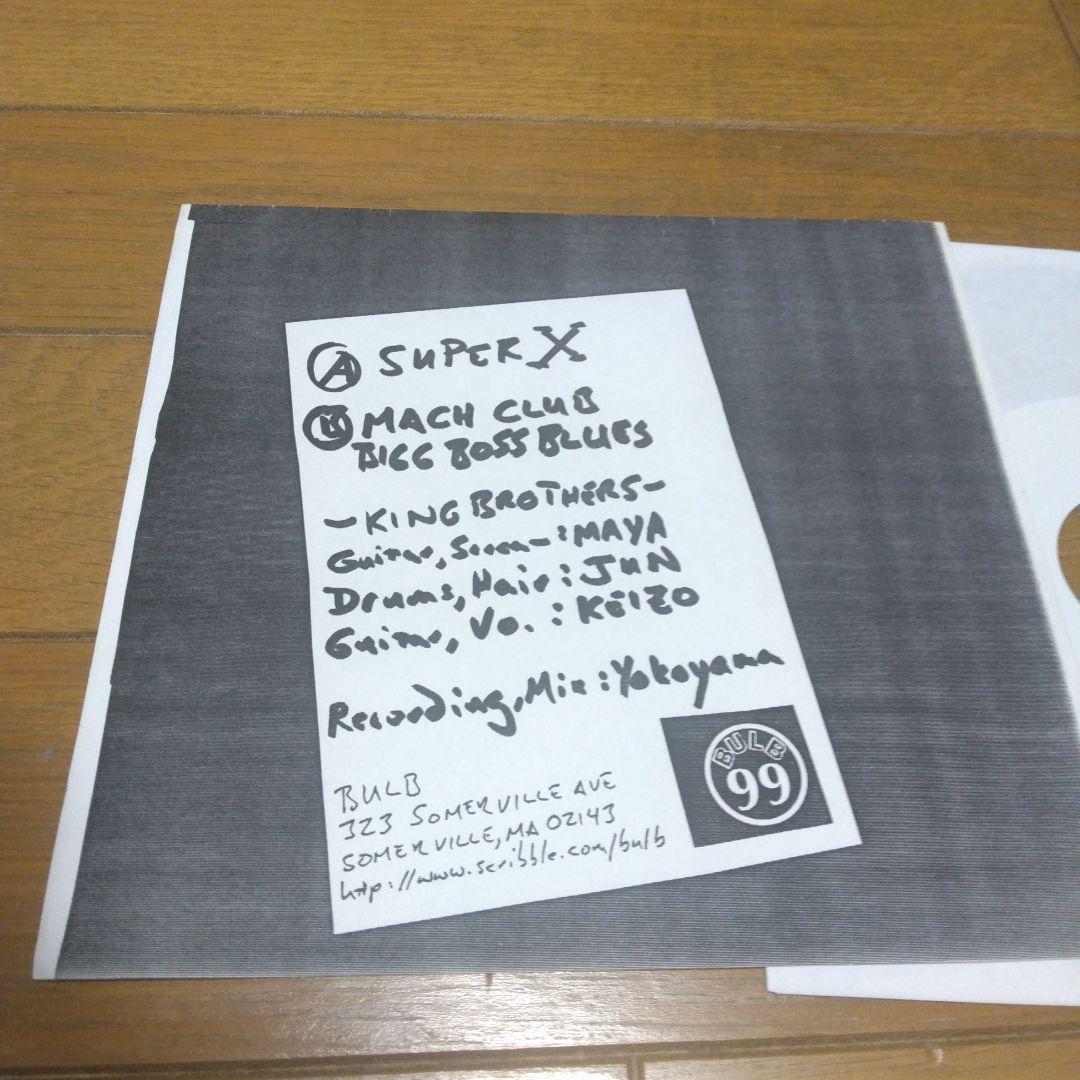 A SUPER X
B MACH CLUB
BIGG BOSS BLUES
-KING BROTHERS-
Guitar, : MAYA
Drums, Hair : JUN
Guitar, Vo. : KEIZO
Recording, Mix : Yokoyama
BULB
323 SOMERVILLE AVE
SOMERVILLE, MA 02143
http://www.scribble.com/bulb
BULB
99